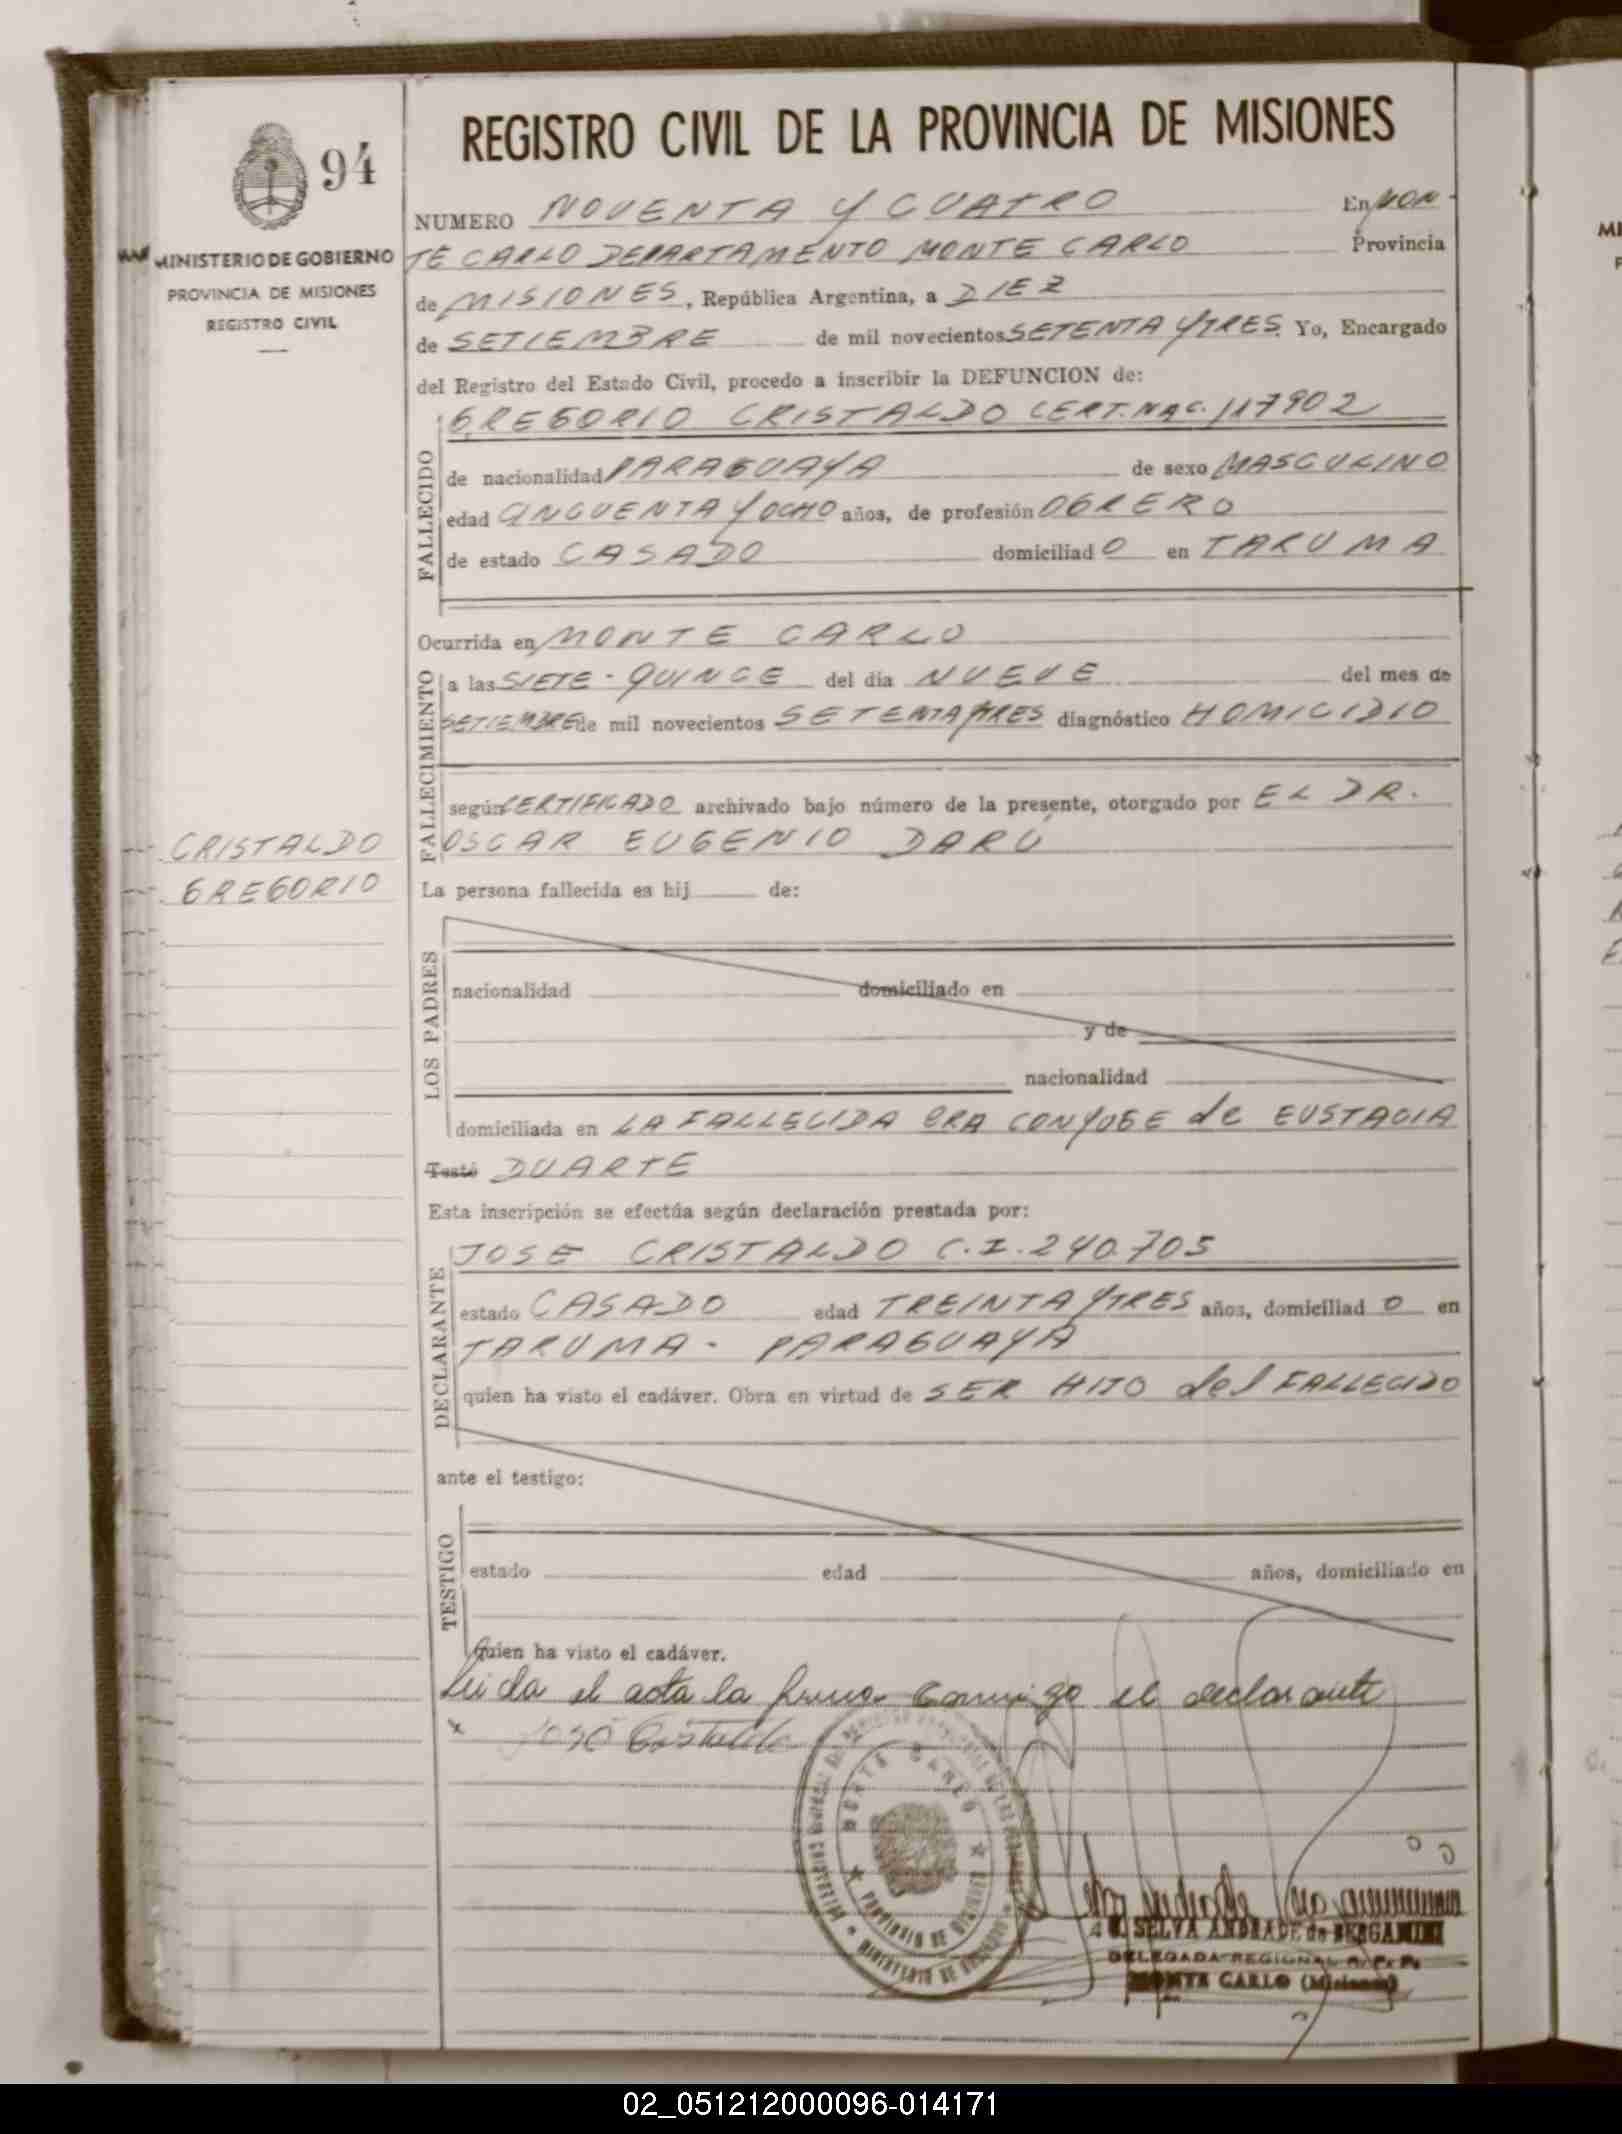 REGISTRO CIVIL DE LA PROVINCIA DE MISIONES
94
MINISTERIO DE GOBIERNO
PROVINCIA DE MISIONES
REGISTRO CIVIL
NUMERO NOVENTA Y CUATRO En MON-
TE CARLO DEPARTAMENTO MONTE CARLO Provincia
de MISIONES, República Argentina, a DIEZ
de SETIEMBRE de mil novecientos SETENTA Y TRES. Yo, Encargado
del Registro del Estado Civil, procedo a inscribir la DEFUNCION de:
GREGORIO CRISTALDO CERT. NAC. 117902
FALLECIDO
de nacionalidad PARAGUAYA de sexo MASCULINO
edad CINCUENTA Y OCHO años, de profesión OBRERO
de estado CASADO domiciliado en TARUMA
Ocurrida en MONTE CARLO
FALLECIMIENTO
a las SIETE - QUINCE del día NUEVE del mes de
SETIEMBRE de mil novecientos SETENTA Y TRES diagnóstico HOMICIDIO
según CERTIFICADO archivado bajo número de la presente, otorgado por EL DR.
OSCAR EUGENIO DARÚ
CRISTALDO
GREGORIO
La persona fallecida es hij de:
LOS PADRES
nacionalidad domiciliado en
y de
nacionalidad
domiciliada en LA FALLECIDA ERA CONYUGE de EUSTACIA
Testó DUARTE
Esta inscripción se efectúa según declaración prestada por:
DECLARANTE
JOSE CRISTALDO C.I. 240.705
estado CASADO edad TREINTA Y TRES años, domiciliado en
TARUMA - PARAGUAYA
quien ha visto el cadáver. Obra en virtud de SER HIJO del FALLECIDO
ante el testigo:
TESTIGO
estado edad años, domiciliado en
quien ha visto el cadáver.
Leida el acta la firma conmigo el declarante
x José Cristaldo
MONTE CARLO
PROVINCIA DE MISIONES
MINISTERIO DE GOBIERNO
SELVA ANDRADE de BERGAMINI
DELEGADA REGIONAL R. P. P.
MONTE CARLO (Misiones)
02_051212000096-014171